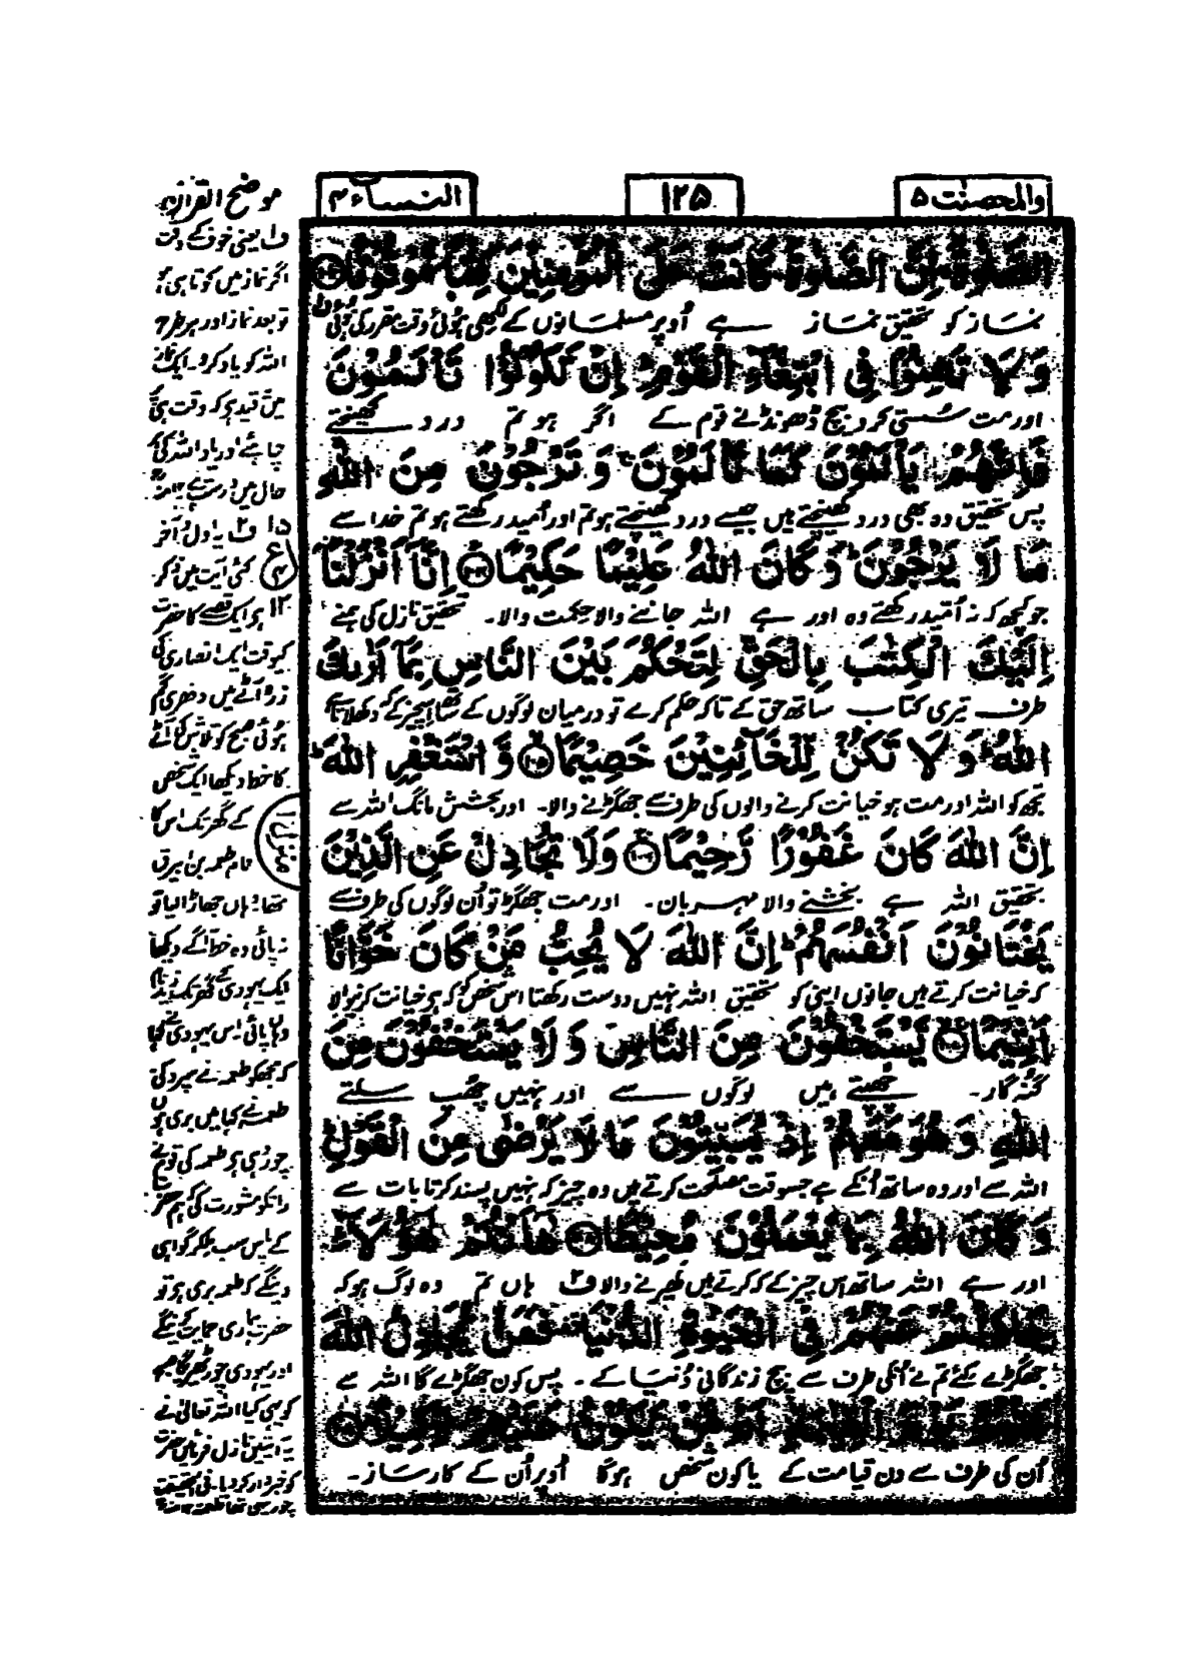 والمحصنت ۵
۱۲۵
النساء ۴
الصَّلٰوةَ اِنَّ الصَّلٰوةَ كَانَتْ عَلَى الْمُؤْمِنِيْنَ كِتٰبًا مَّوْقُوْتًا ﴿۱۰۳﴾
نماز کو تحقیق نماز ہے اُوپر مسلمانوں کے لکھی ہوئی وقت مقرر کی ہوئی
وَلَا تَهِنُوْا فِى ابْتِغَآءِ الْقَوْمِ ؕ اِنْ تَكُوْنُوْا تَاْلَمُوْنَ
اور مت سستی کرو بیچ ڈھونڈنے قوم کے اگر ہو تم درد کھینچتے
فَاِنَّهُمْ يَاْلَمُوْنَ كَمَا تَاْلَمُوْنَ ۚ وَ تَرْجُوْنَ مِنَ اللّٰهِ
پس تحقیق وہ بھی درد کھینچتے ہیں جیسے درد کھینچتے ہو تم اور اُمید رکھتے ہو تم خدا سے
مَا لَا يَرْجُوْنَ ؕ وَ كَانَ اللّٰهُ عَلِيْمًا حَكِيْمًا ﴿۱۰۴﴾ اِنَّاۤ اَنْزَلْنَاۤ
جو کچھ کہ نہ اُمید رکھتے وہ اور ہے اللہ جاننے والا حکمت والا۔ تحقیق نازل کی ہمنے
اِلَيْكَ الْكِتٰبَ بِالْحَقِّ لِتَحْكُمَ بَيْنَ النَّاسِ بِمَاۤ اَرٰىكَ
طرف تیری کتاب ساتھ حق کے تاکہ حکم کرے تو درمیان لوگوں کے ساتھ اس چیز کے کہ دکھلاتا ہے
اللّٰهُ ؕ وَ لَا تَكُنْ لِّلْخَآئِنِيْنَ خَصِيْمًا ﴿۱۰۵﴾ وَّ اسْتَغْفِرِ اللّٰهَ ؕ
تجھ کو اللہ اور مت ہو خیانت کرنے والوں کی طرف سے جھگڑنے والا۔ اور بخشش مانگ اللہ سے
اِنَّ اللّٰهَ كَانَ غَفُوْرًا رَّحِيْمًا ﴿۱۰۶﴾ وَلَا تُجَادِلْ عَنِ الَّذِيْنَ
تحقیق اللہ ہے بخشنے والا مہربان۔ اور مت جھگڑ تو اُن لوگوں کی طرف سے
يَخْتَانُوْنَ اَنْفُسَهُمْ ؕ اِنَّ اللّٰهَ لَا يُحِبُّ مَنْ كَانَ خَوَّانًا
کہ خیانت کرتے ہیں جانوں اپنی کو تحقیق اللہ نہیں دوست رکھتا اس شخص کو کہ ہو خیانت کرنیوالا
اَثِيْمًا ﴿۱۰۷﴾ يَّسْتَخْفُوْنَ مِنَ النَّاسِ وَ لَا يَسْتَخْفُوْنَ مِنَ
گنہگار۔ چھپتے ہیں لوگوں سے اور نہیں چھپ سکتے
اللّٰهِ وَ هُوَ مَعَهُمْ اِذْ يُبَيِّتُوْنَ مَا لَا يَرْضٰى مِنَ الْقَوْلِ ؕ
اللہ سے اور وہ ساتھ اُنکے ہے جسوقت مصلحت کرتے ہیں وہ چیز کہ نہیں پسند کرتا بات سے
وَ كَانَ اللّٰهُ بِمَا يَعْمَلُوْنَ مُحِيْطًا ﴿۱۰۸﴾ هٰۤاَنْتُمْ هٰۤؤُلَآءِ
اور ہے اللہ ساتھ اس چیز کے کہ کرتے ہیں گھیرنے والا ف۲ ہاں تم وہ لوگ ہو کہ
جَادَلْتُمْ عَنْهُمْ فِى الْحَيٰوةِ الدُّنْيَا فَمَنْ يُّجَادِلُ اللّٰهَ
جھگڑے کئے تم نے اُنکی طرف سے بیچ زندگانی دُنیا کے۔ پس کون جھگڑے گا اللہ سے
عَنْهُمْ يَوْمَ الْقِيٰمَةِ اَمْ مَّنْ يَّكُوْنُ عَلَيْهِمْ وَكِيْلًا ﴿۱۰۹﴾
اُن کی طرف سے دن قیامت کے یا کون شخص ہوگا اُوپر اُن کے کارساز۔
موضح القرآن
ف۱ یعنی خوف کے وقت
اگر نماز میں کوتاہی ہو
تو بعد نماز اور ہر طرح
اللہ کو یاد کرو۔ ایک نماز
میں قید ہی کہ وقت پر
چاہئے اور یاد اللہ کی ہر
حال میں درست ہے ۱۲ منہ
ف۲ یہ اول و آخر
کئی آیت میں ذکر
ہے ایک قصے کا حضرت
کیوقت ایک انصاری کی
زرہ آٹے میں دھری گم
ہوئی صبح کو تلاش کی آٹے
کا خط دیکھا ایک شخص
کے گھر تک اس کا
نام طعمہ بن ابیرق
تھا وہاں جھاڑا لیا تو
نہ پائی وہ خط آگے دیکھا
ایک یہودی کے گھر تک
وہاں پائی اس یہودی نے کہا
کہ مجھکو طعمہ نے سپرد کی
طعمہ نے کہا میں بری ہوں
چور یہی ہے طعمہ کی قوم نے
راتکو مشورت کی کہ ہم حضرت
کے پاس سب ملکر گواہی
دینگے کہ طعمہ بری ہے تو
حضرت ہماری حمایت کرینگے
اور یہودی چور ٹھہریگا صبح
کو یہی کیا اللہ تعالیٰ نے
یہ آیتیں نازل فرمائیں حضرت
کو خبردار کر دیا۔ فی الحقیقت
چور یہی تھا طعمہ ۱۲ منہ
۱۵
ع
۱۲
منزل ۱